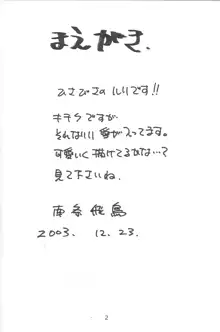 まえがき.
ひさびさの ルリです!!
キチクですが
そんなルリに愛が入ってます。
可愛いく描けてるかな…って
見て下さいね。
南条飛鳥
2003. 12. 23.
2